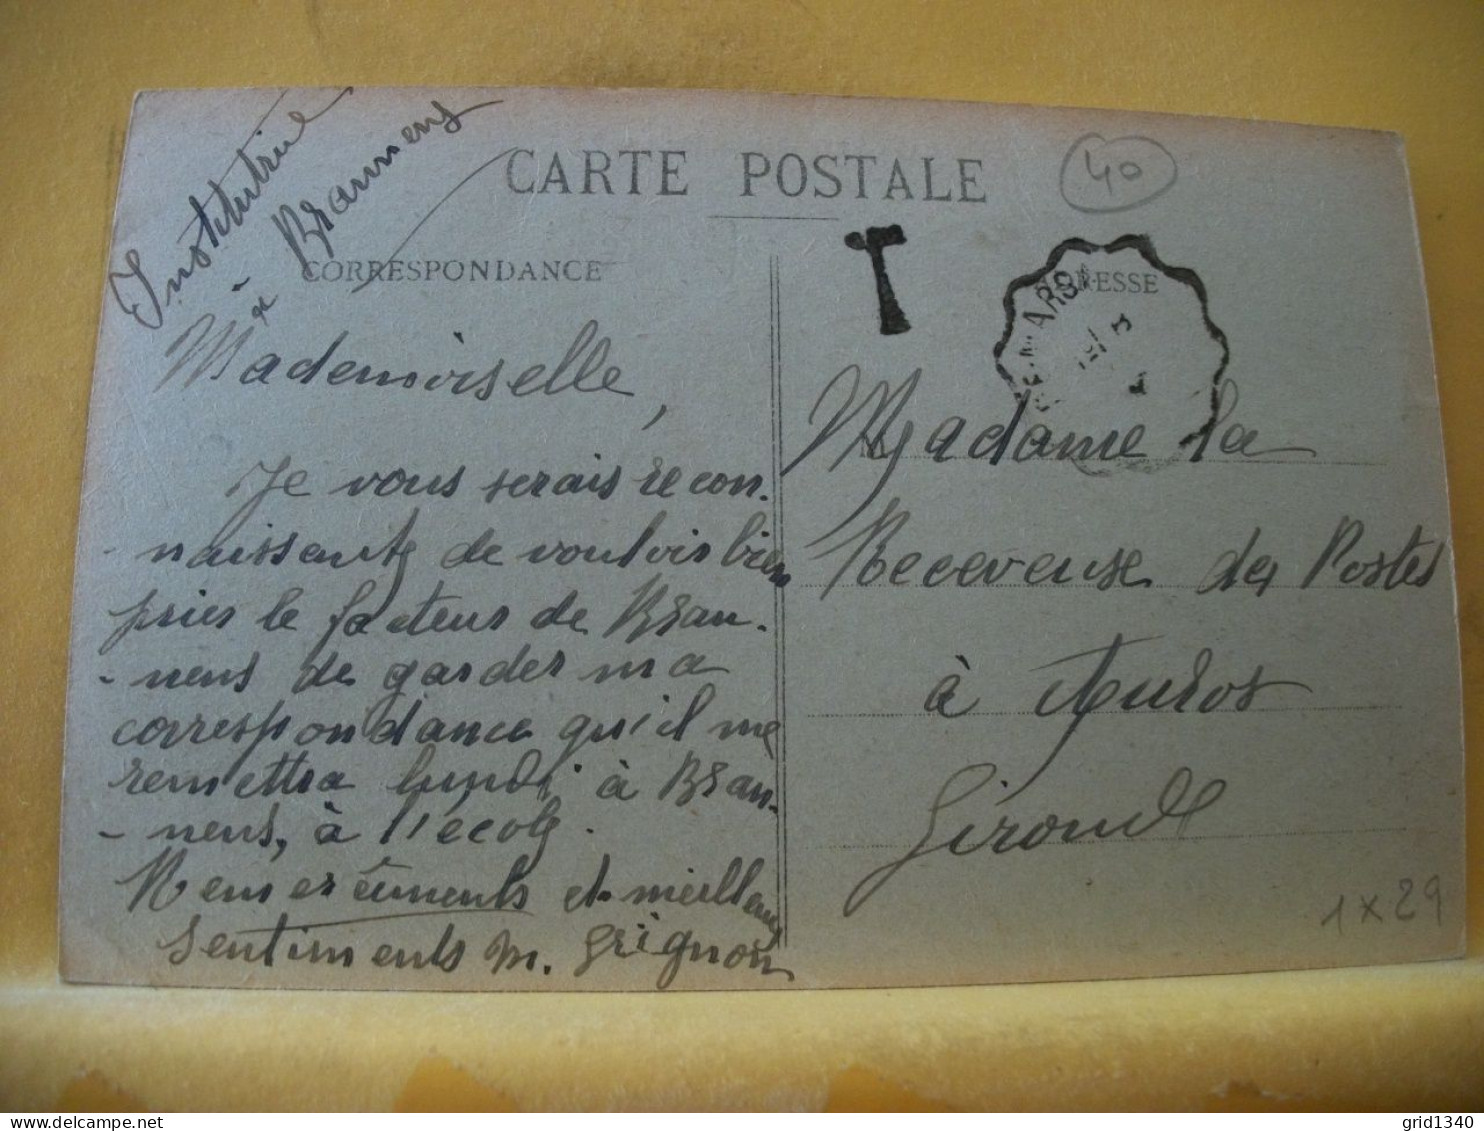 CARTE POSTALE
40
CORRESPONDANCE
ADRESSE
T
Institutrice
à Brannens
Mademoiselle,
Je vous serais recon-
-naissante de vouloir bien
prier le facteur de Bran-
-nens de garder ma
correspondance qu'il me
remettra lundi à Bran-
-nens, à l'école.
Remerciements et meilleurs
sentiments M. Grignon
Madame la
Receveuse des Postes
à Auros
Gironde
1 x 29
grid1340